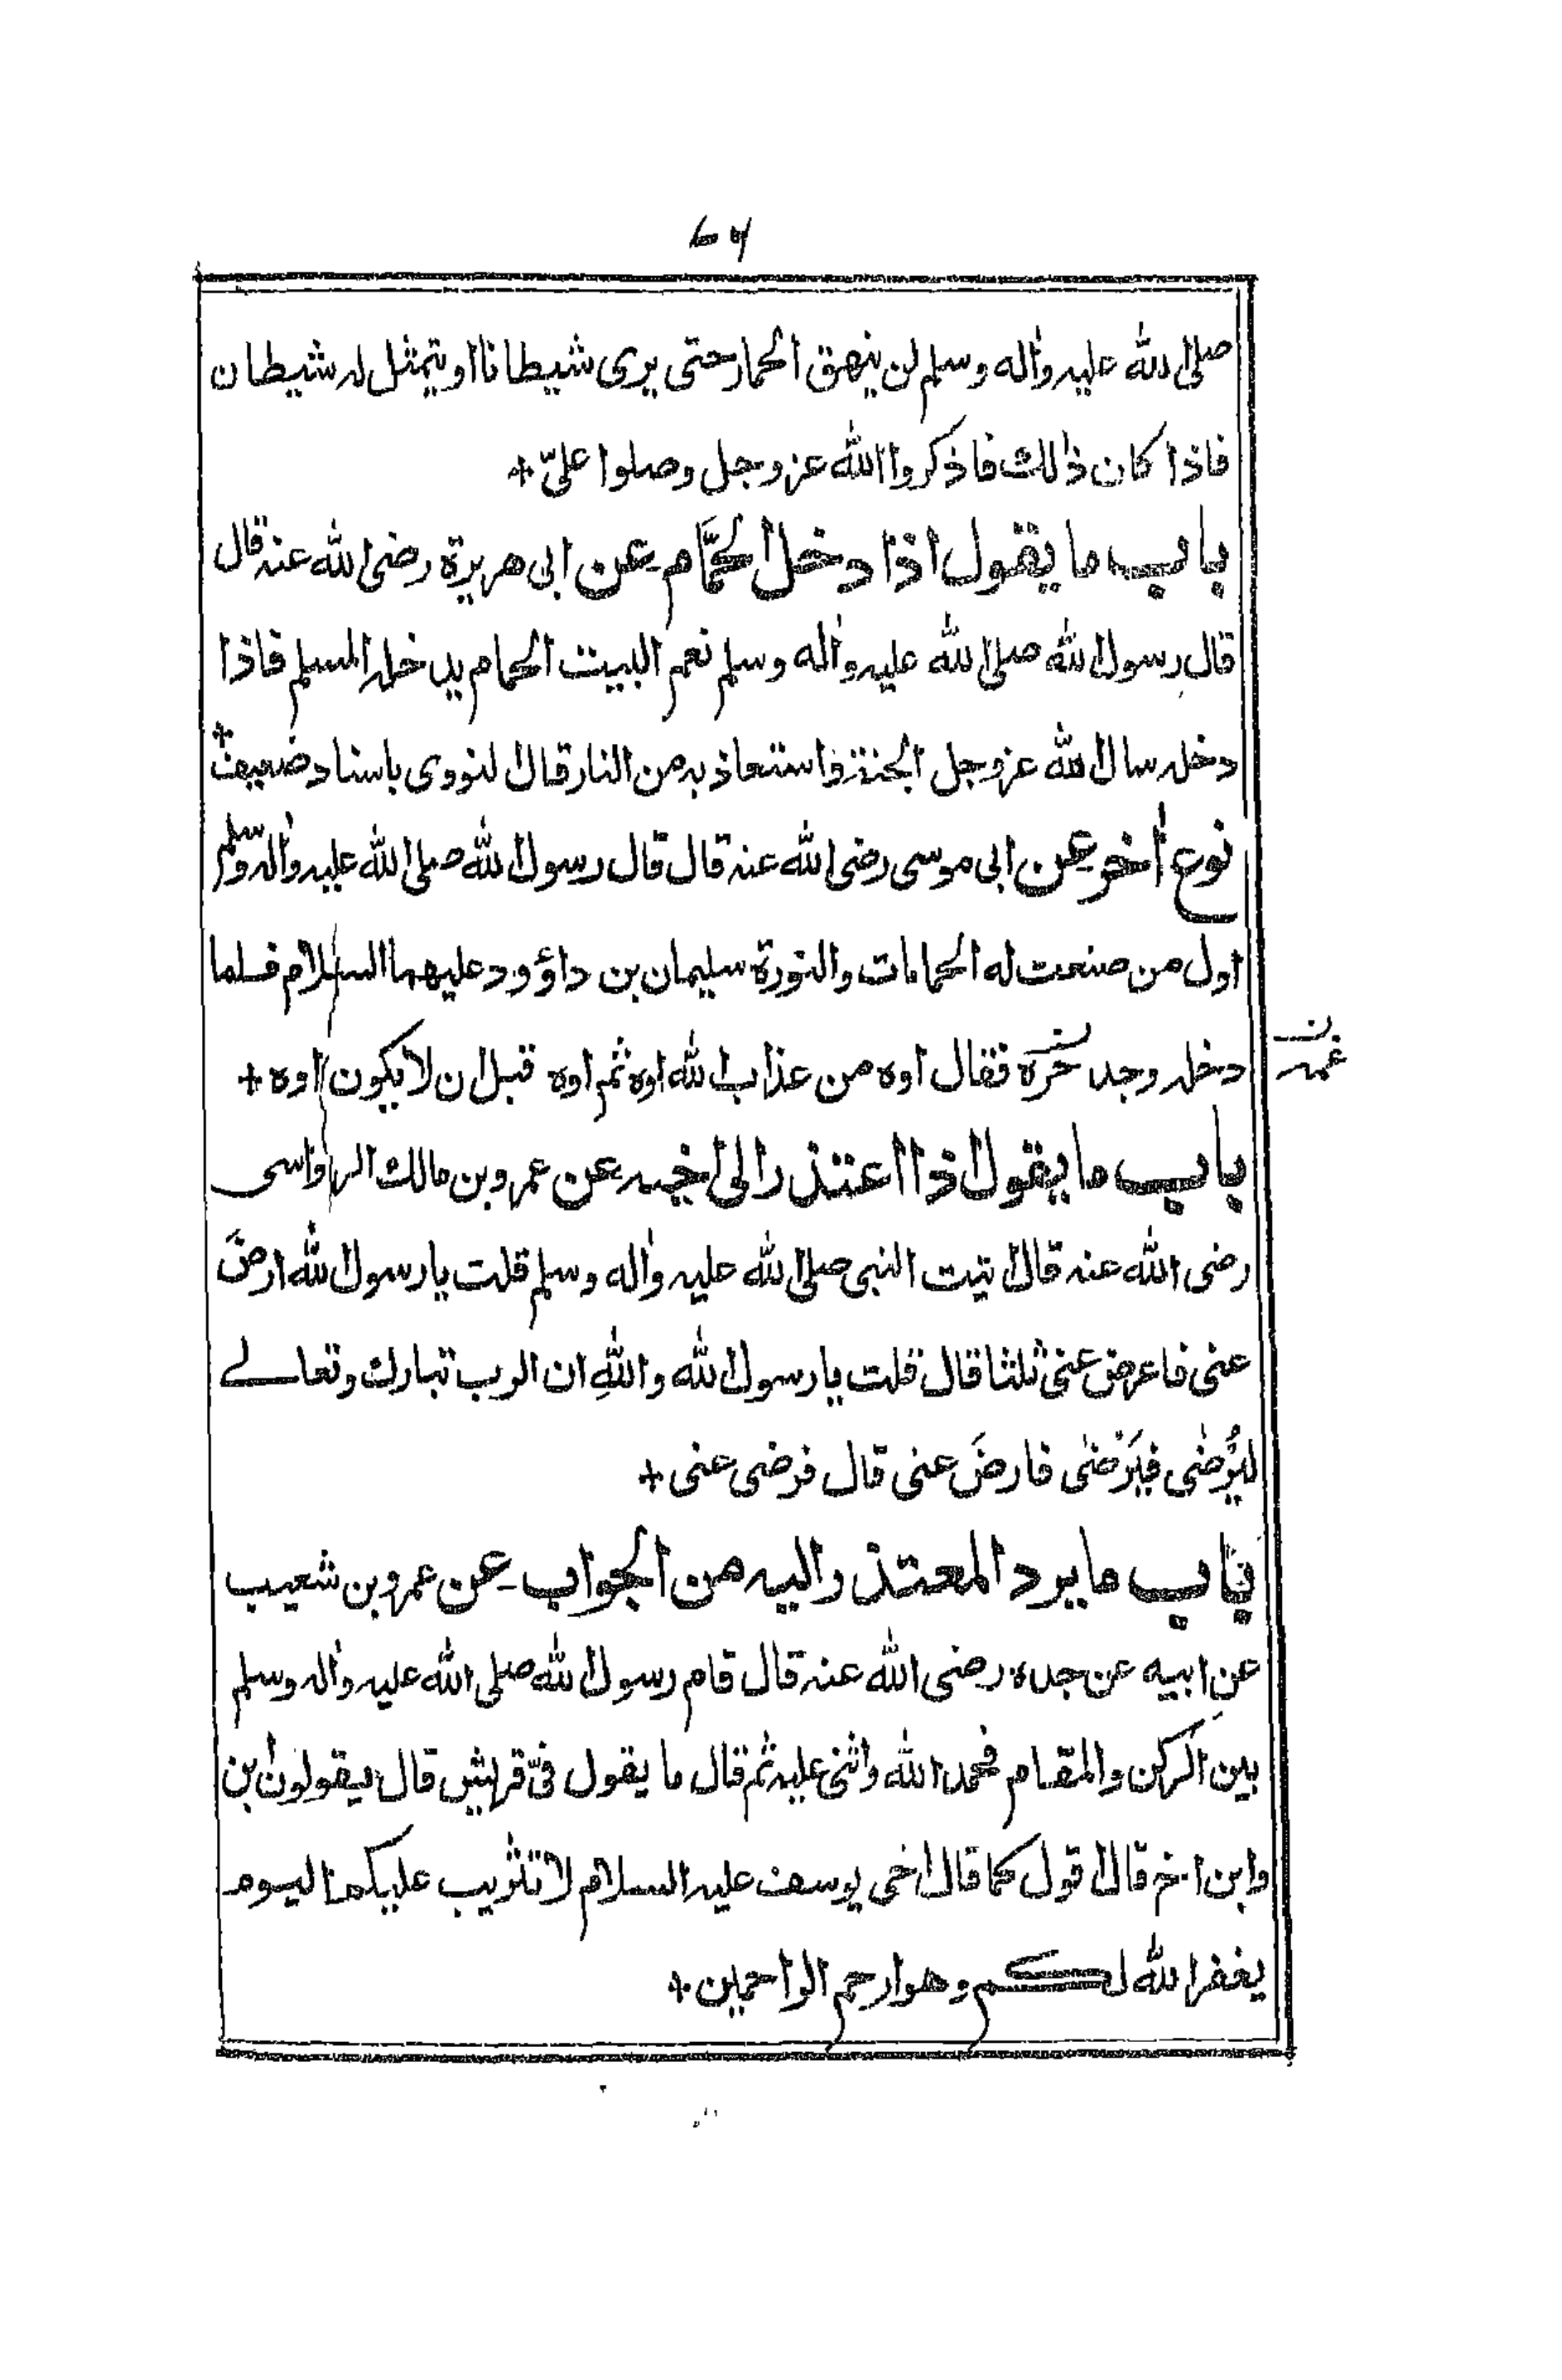 ٧٦
صلى الله عليه وآله وسلم لن ينهق الحمار حتى يرى شيطانا او يتمثل له شيطان
فاذا كان ذالك فاذكروا الله عز وجل وصلوا علىّ +
باب ما يقول اذا دخل الحمَّام - عن ابى هريرة رضى الله عنه قال
قال رسول الله صلى الله عليه وآله وسلم نعم البيت الحمام يدخله المسلم فاذا
دخله سال الله عز وجل الجنة واستعاذ به من النار قال النووى باسناد ضعيف +
نوع أخر عن ابى موسى رضى الله عنه قال قال رسول الله صلى الله عليه وآله وسلم
اول من صنعت له الحمامات والنورة سليمان بن داؤود عليهما السلام فلما
دخله وجد حَرّه فقال اوه من عذاب الله اوه ثم اوه قبل ان لا يكون اوه +
باب ما يقول اذا اعتذر الى اخيه - عن عمرو بن مالك الرواسى
رضى الله عنه قال اتيت النبى صلى الله عليه وآله وسلم قلت يا رسول الله ارضَ
عنى فاعرض عنى ثلثا قال قلت يا رسول الله واللهِ ان الرب تبارك وتعالے
ليُرضٰى فيَرْضٰى فارضَ عنى قال فرضى عنى +
باب ما يرد المعتذر اليه من الجواب - عن عمرو بن شعيب
عن ابيه عن جده رضى الله عنه قال قام رسول الله صلى الله عليه وآله وسلم
بين الركن والمقام فحمد الله واثنى عليه ثم قال ما يقول فىّ قريش قال يقولون ابن
وابن اخ قال اقول كما قال اخى يوسف عليه السلام لا تثريب عليكم اليوم
يغفر الله لكم وهو ارحم الراحمين +